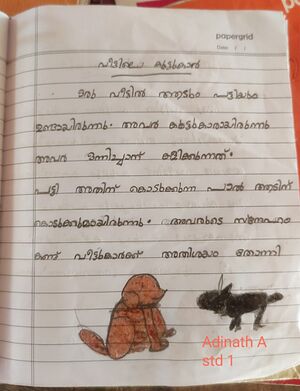 papergrid
Date / /
വീട്ടിലെ കൂട്ടുകാർ
ഒരു വീട്ടിൽ ആടും പട്ടിയും
ഉണ്ടായിരുന്നു. അവർ കൂട്ടുകാരായിരുന്നു
അവർ ഒന്നിച്ചാണ് കളിക്കുന്നത്.
പട്ടി അതിന് കൊടുക്കുന്ന പാൽ ആടിന്
കൊടുക്കുമായിരുന്നു. അവരുടെ സ്നേഹം
കണ്ട് വീട്ടുകാർക്ക് അതിശയം തോന്നി
Adinath A
std 1